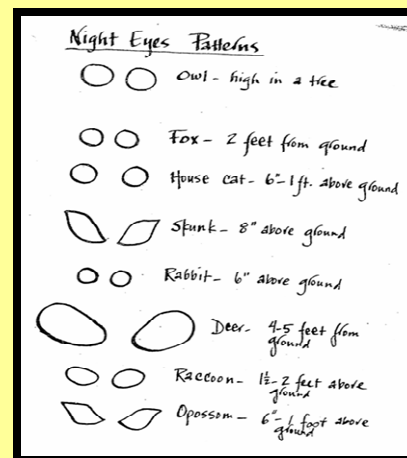 Night Eyes Patterns
Owl - high in a tree
Fox - 2 feet from ground
House cat - 6"-1 ft. above ground
Skunk - 8" above ground
Rabbit - 6" above ground
Deer - 4-5 feet from
ground
Raccoon - 1½-2 feet above
ground
Opossom - 6"-1 foot above
ground